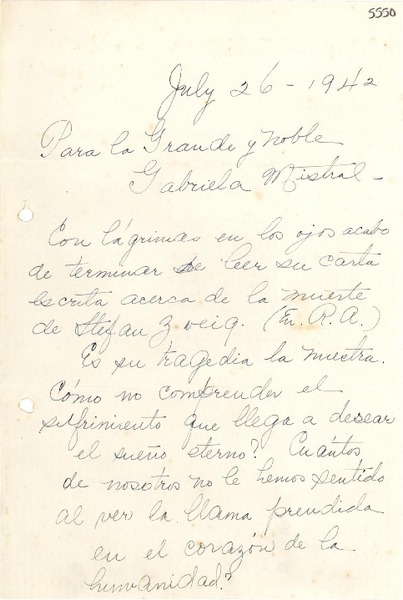 5550
July 26 - 1942
Para la Grande y noble
Gabriela Mistral -
Con lágrimas en los ojos acabo
de terminar de leer su carta
escrita acerca de la muerte
de Stefan Zweig. (En R.A.)
Es su tragedia la nuestra.
Cómo no comprender el
sufrimiento que llega a desear
el sueño eterno? Cuántos
de nosotros no le hemos sentido
al ver la llama prendida
en el corazón de la
humanidad?